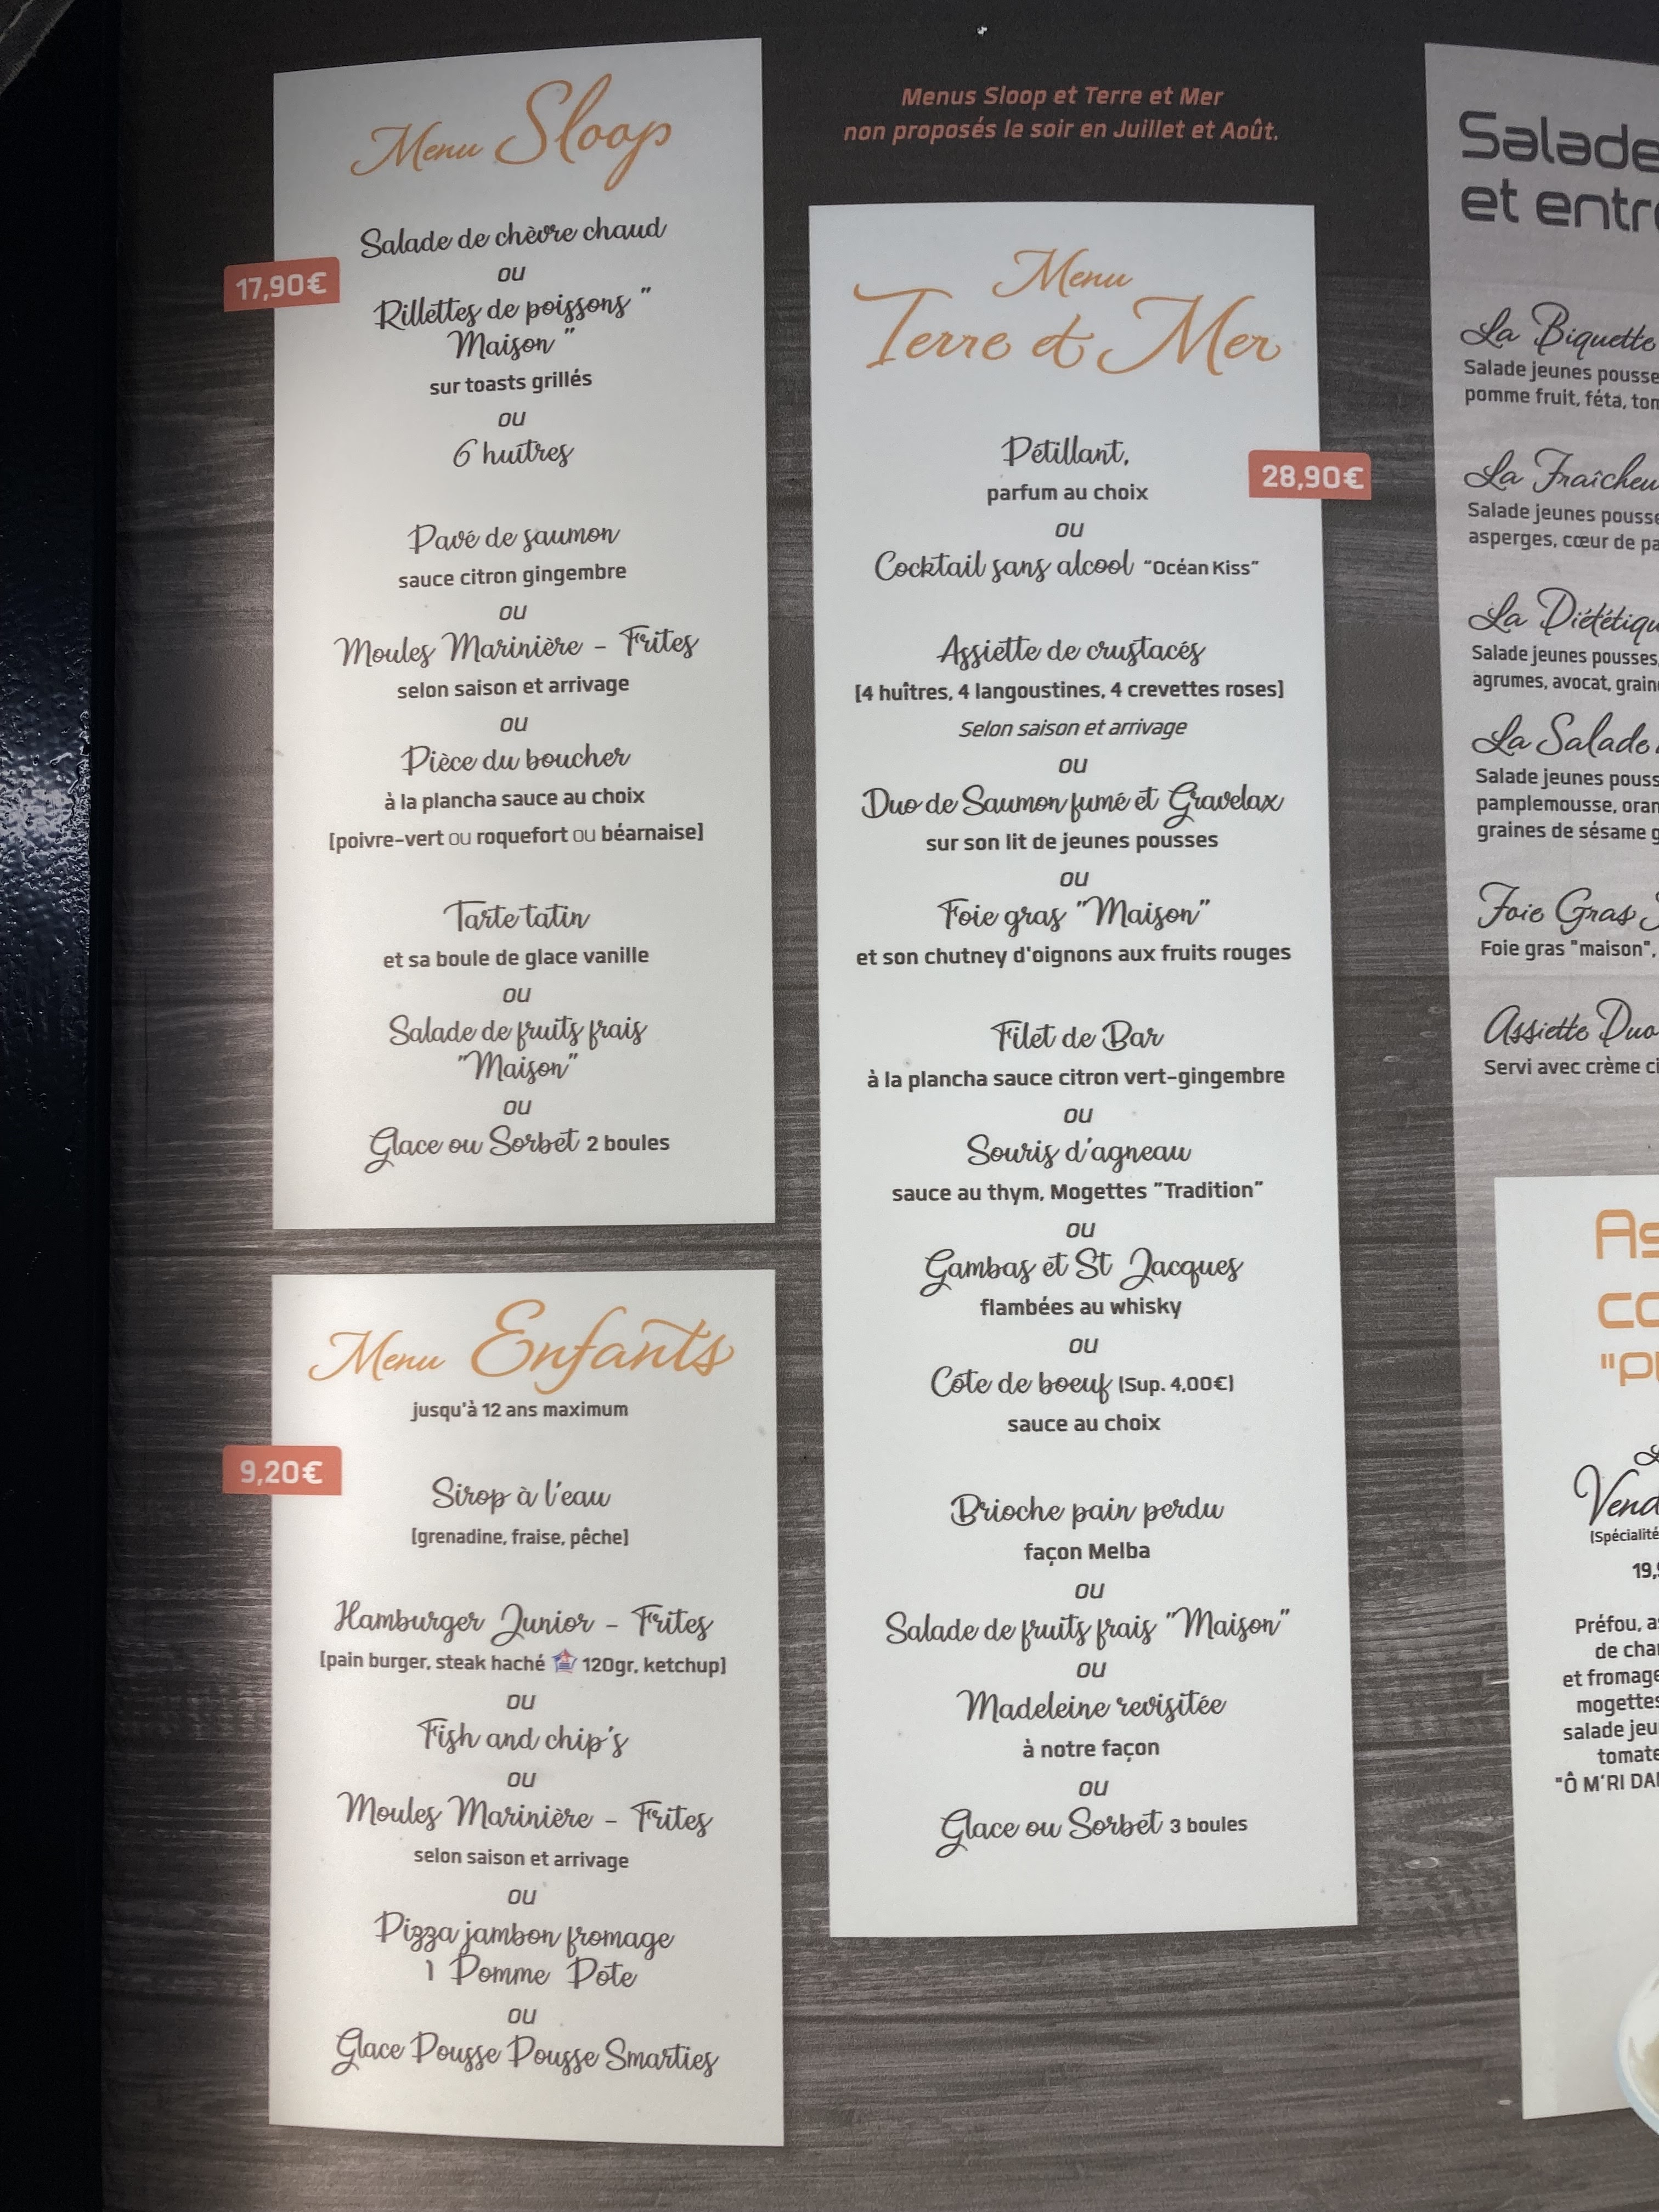 Menu Sloop
17,90€
Salade de chèvre chaud
ou
Rillettes de poissons "
Maison "
sur toasts grillés
ou
6 huîtres
Pavé de saumon
sauce citron gingembre
ou
Moules Marinière - Frites
selon saison et arrivage
ou
Pièce du boucher
à la plancha sauce au choix
[poivre-vert ou roquefort ou béarnaise]
Tarte tatin
et sa boule de glace vanille
ou
Salade de fruits frais
"Maison"
ou
Glace ou Sorbet 2 boules
Menu Enfants
jusqu'à 12 ans maximum
9,20€
Sirop à l'eau
[grenadine, fraise, pêche]
Hamburger Junior - Frites
[pain burger, steak haché 120gr, ketchup]
ou
Fish and chip's
ou
Moules Marinière - Frites
selon saison et arrivage
ou
Pizza jambon fromage
1 Pomme Pote
ou
Glace Pousse Pousse Smarties
Menus Sloop et Terre et Mer
non proposés le soir en Juillet et Août.
Menu
Terre et Mer
28,90€
Pétillant,
parfum au choix
ou
Cocktail sans alcool "Océan Kiss"
Assiette de crustacés
[4 huîtres, 4 langoustines, 4 crevettes roses]
Selon saison et arrivage
ou
Duo de Saumon fumé et Gravelax
sur son lit de jeunes pousses
ou
Foie gras "Maison"
et son chutney d'oignons aux fruits rouges
Filet de Bar
à la plancha sauce citron vert-gingembre
ou
Souris d'agneau
sauce au thym, Mogettes "Tradition"
ou
Gambas et St Jacques
flambées au whisky
ou
Côte de boeuf [Sup. 4,00€]
sauce au choix
Brioche pain perdu
façon Melba
ou
Salade de fruits frais "Maison"
ou
Madeleine revisitée
à notre façon
ou
Glace ou Sorbet 3 boules
Salade
et entr
La Biquette
Salade jeunes pousse
pomme fruit, féta, tom
La Fraîcheu
Salade jeunes pousse
asperges, cœur de pa
La Diététiqu
Salade jeunes pousses,
agrumes, avocat, grain
La Salade
Salade jeunes pouss
pamplemousse, oran
graines de sésame g
Foie Gras
Foie gras "maison",
Assiette Duo
Servi avec crème ci
As
co
"Pl
Vend
[Spécialité
19,
Préfou, as
de char
et fromage
mogettes
salade jeu
tomate
"Ô M'RI DA